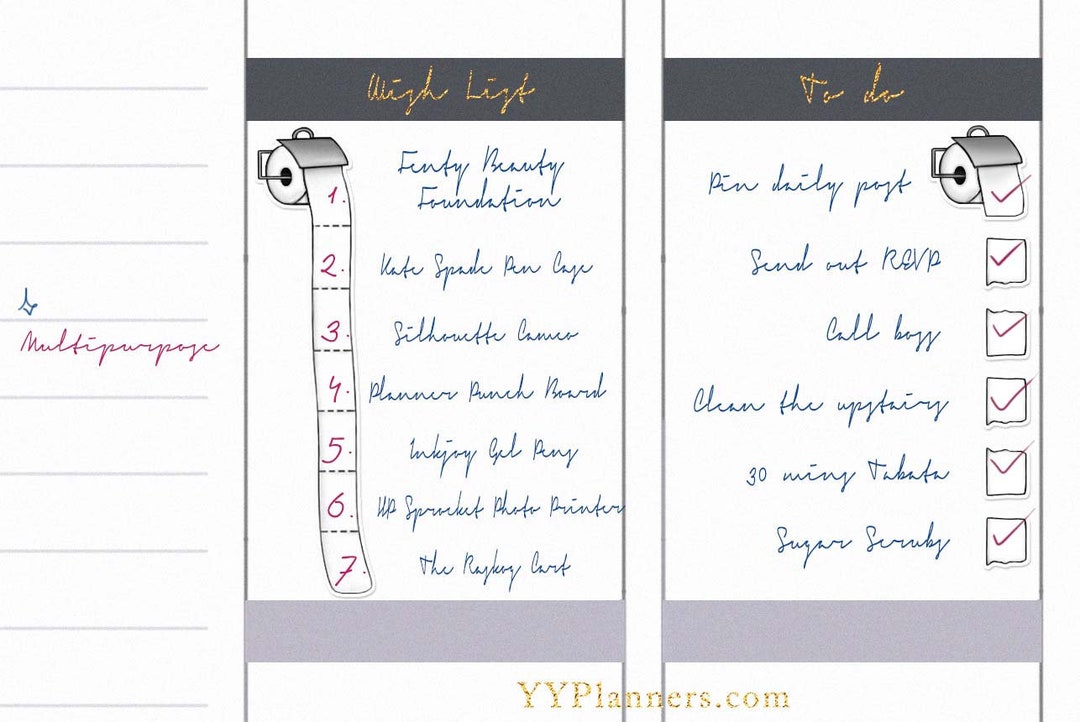 Wish List
1. Fenty Beauty
Foundation
2. Kate Spade Pen Case
3. Silhouette Cameo
4. Planner Punch Board
5. Inkjoy Gel Pens
6. HP Sprocket Photo Printer
7. The Raskog Cart
To do
Pin daily post
Send out RSVP
Call boss
Clean the upstairs
30 mins Tabata
Sugar Scrubs
Multipurpose
YYPlanners.com